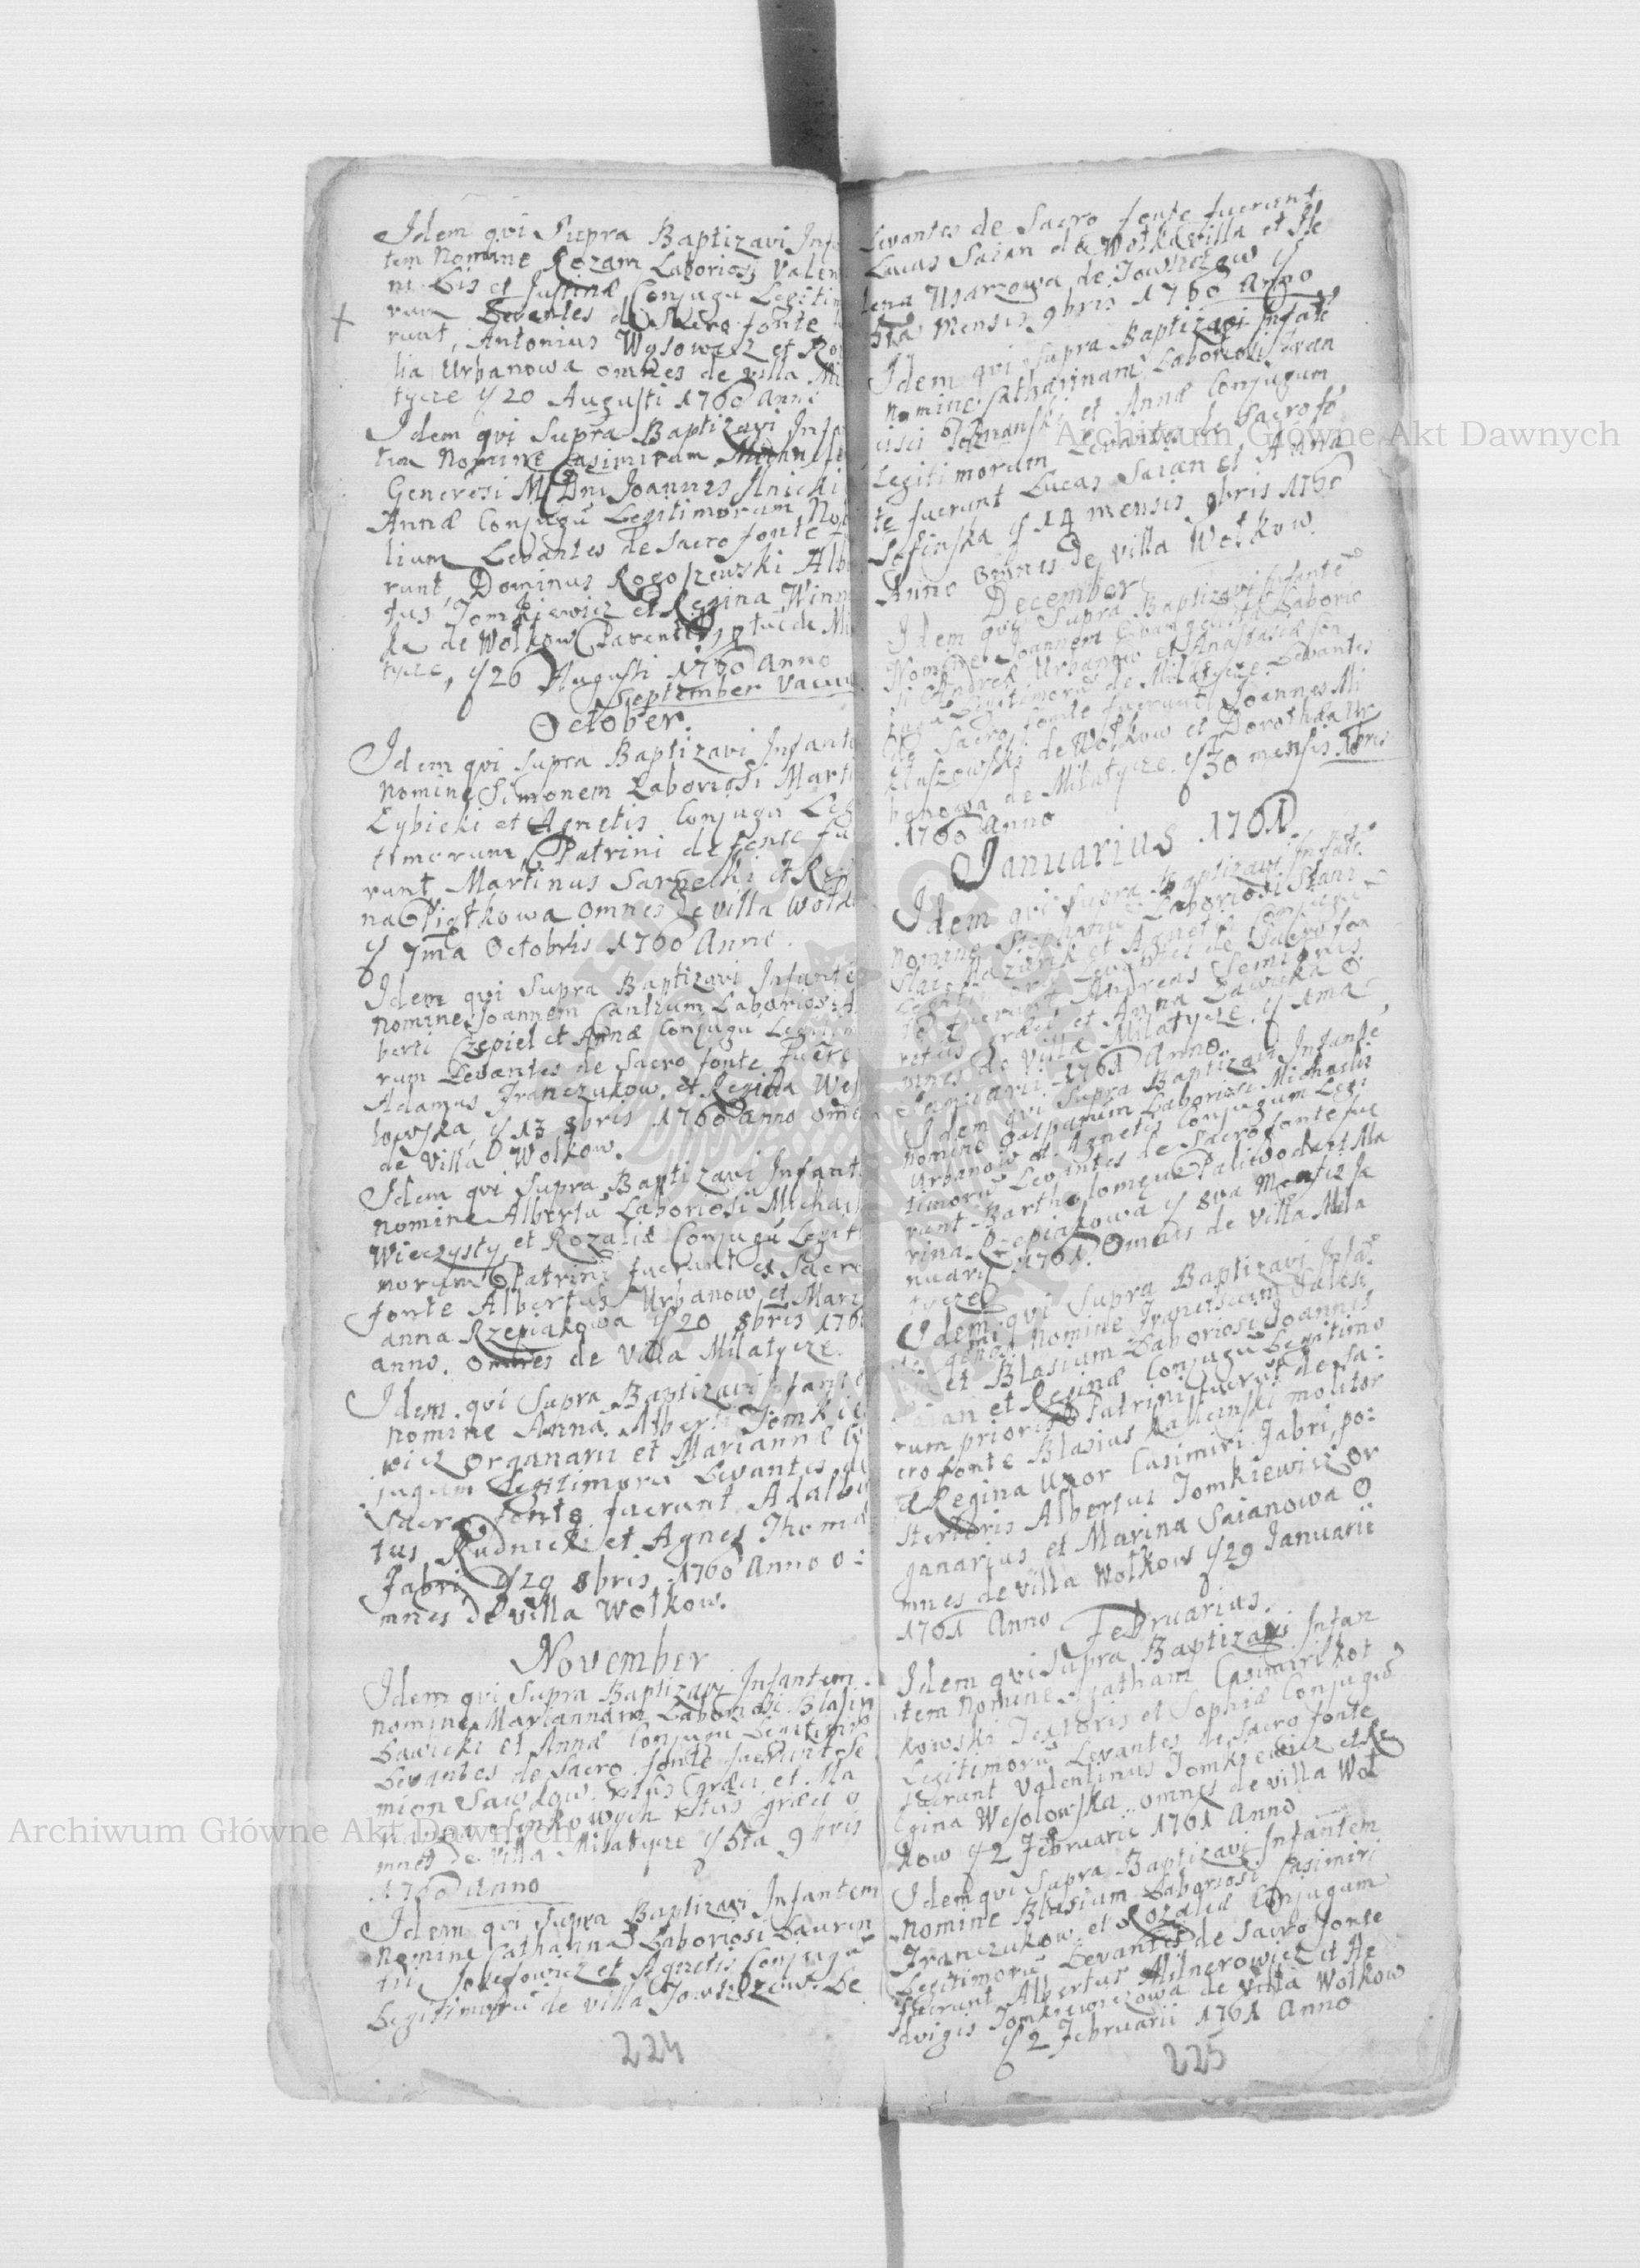 Idem qvi Supra Baptizavi Infa
tem Nomine Rozam Laboriosi Valen
ni Lis et Justinæ Conjugũ Legitim
rum Levantes de Sacro fonte
runt, Antonius Wąsowicz et Ro
lia Urbanowa omnes de villa Mi
tycze 20 Augusti 1760 anni
Idem qvi Supra Baptizavi Infa
tem Nomine Casimiram
Generosi M Dni Joannis Ilnicki
Annæ Conjugũ Legitimorum No
lium Levantes de Sacro fonte f
runt, Dominus Rogoszewski Alb
tus Tomkiewicz et Regina Winn
ka de Wołkow Parentes de Mi
tycze, 26 Augusti 1760 anno
September Vacuu
October.
Idem qvi supra Baptizavi Infant
nomine Simonem Laboriosi Marti
Łybicki et Agnetis Conjugũ Leg
timorum Patrini de fonte fu
runt Martinus Sarnecki et Re
na Piątkowa omnes de villa Wołk
7ma Octobris 1760 Anno.
Idem qvi Supra Baptizavi Infante
nomine Joannem Cantium Laboriosi Al
berti Czepiel et Annæ Conjugũ Legitim
rum Levantes de Sacro fonte fuere
Adamus Franczukow et Regina Weso
łowska, 13 8bris 1760 anno omn
de Villa Wołkow.
Idem qvi Supra Baptizavi Infant
nomine Albertũ Laboriosi Michael
Wieczysty et Rozaliæ Conjugũ Legiti
morum Patrini fuerunt es Sacro
fonte Albertus Urbanow et Mari
anna Rzepiakowa 20 8bris 1760
anno. omnes de Villa Miłatycze.
Idem qvi Supra Baptizavi Infante
nomine Anna Alberti Tomkie
wicz Organarii et Mariannæ Co
jugum Legitimorũ Levantes de
Sacro fonte fuerunt Adalbe
tus Rudnicki et Agnes Thoma
Fabri 29 8bris 1760 Anno o:
mnes de villa Wołkow.
November
Idem qvi Supra Baptizavi Infantem
nomine Mariannam Laboriosi Blasii
Ławicki et Annæ Conjugũ Legitimo
Levantes de Sacro fonte fuerunt Se
mion Sawdow ritus Græci et Ma
rianna ritus græci o
mnes de villa Miłatycze 5ta 9bris
1760 anno
Idem qvi Supra Baptizavi Infantem
Nomine Catharina Laboriosi Lauren
tii Josefowicz et Agnetis Conjugũ
Legitimorũ de villa Jowszczow. Le
224
Levantes de Sacro fonte fuerunt
Lucas Saian de Wołkow villa et He
lena Usarzowa de Jowszczow
5ta Mensis 9bris 1760 Anno
Idem qvi supra Baptizavi Infãtẽ
nomine Catharinam Laboriosi Fran
cisci Poznanski et Annæ Conjugum
Legitimorum Levantes de Sacro fõ
te fuerunt Lucas Saian et Anna
14 mensis 9bris 1760
Anno omnes de villa Wołkow.
December
Idem qvi Supra Baptizavi Infantẽ
Nomine Joannem Evangelistã Laborio
si Andreæ Urbanow et Anastasiæ Con
jugũ Legitimorũ de Miłatycze. Levantes
de Sacro fonte fuerunt Joannes Mi
kłaszowski de Wołkow et Dorothea Ur
banowa de Miłatycze. 30 mensis Xbris
1760 anno
Januarius 1761
Idem qvi Supra Baptizavi Infãtẽ
nomine Stephanũ Laboriosi Stani
slai Mazurik et Agnetis Conjugũ
Legitimorũ Levantes de Sacro fon
te fuerunt Andreas Semigras
retus græci et Anna Ławicka o
mnes de Villa Miłatycze. 1ma
Januarii 1761 anno.
Idem qvi Supra Baptizavi Infante
nomine Gasparum Laboriosi Michaelis
Urbanow et Agnetis Conjugum Legi
timorũ Levantes de Sacro fonte fue
runt Bartholomeus Paliwoda et Ma
rina Rzepiakowa 8va Mensis Ja
nuarii 1761 Omnes de villa Miła
tycze
Idem qvi Supra Baptizavi Infã
nomine Franciscum Salesi
um et Blasium Laboriosi Joannes
Saian et Reginæ Conjugũ Legitimo
rum prioris Patrini fuerũt de Sa:
cro fonte Blasius Kaliczinski molitor
et Regina Uxor Casimiri Fabri, po:
sterioris Albertus Tomkiewicz or
ganarius et Marina Saianowa o
mnes de villa Wołkow 29 Januarii
1761 Anno
Februarius.
Idem qvi Supra Baptizavi Infan
tem Nomine Agatham Casimiri Kot
kowski Textoris et Sophiæ Conjugũ
Legitimorũ Levantes de Sacro fonte
fuerunt Valentinus Tomkiewicz et Re
gina Wesołowska omnes de villa Woł
kow 2 Februarii 1761 Anno
Idem qvi Supra Baptizavi Infantem
Nomine Blasium Laboriosi Casimiri
Franczukow et Rozaliæ Conjugum
Legitimorũ Levantes de Sacro fonte
fuerunt Albertus Milnerowicz et He
dvigis Tomkiewiczowa de villa Wołkow
2 Februarii 1761 Anno
225
Archiwum Główne Akt Dawnych
Archiwum Główne Akt Dawnych